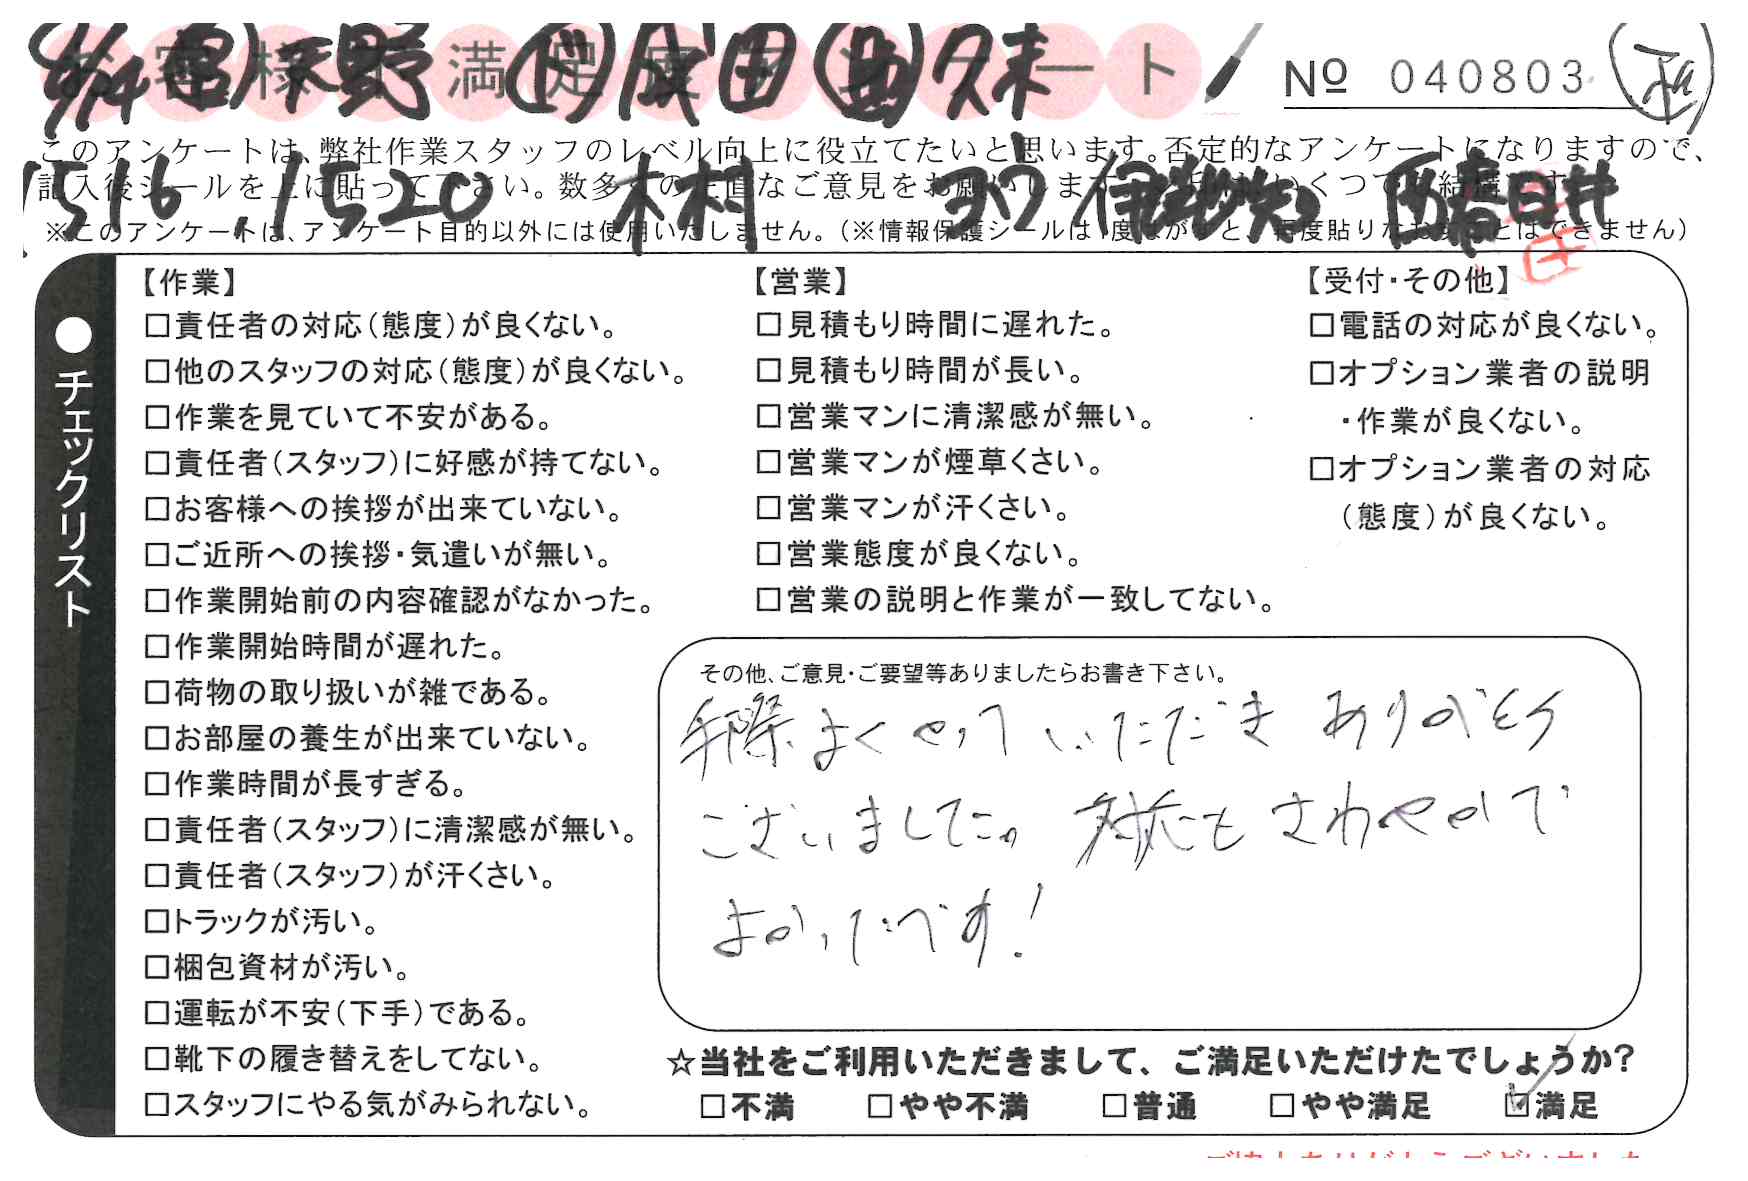 お客様不満足度アンケート
4/14 営)矢野 (ド)成田 (助)久末
No 040803
このアンケートは、弊社作業スタッフのレベル向上に役立てたいと思います。否定的なアンケートになりますので、
記入後シールを上に貼って下さい。数多くの正直なご意見をお願いします。
1516.1520 木村 ヨワ 伊勢 西春日井
※このアンケートは、アンケート目的以外には使用いたしません。(※情報保護シールは1度はがすと、再度貼りなおすことはできません)
●チェックリスト
【作業】
□責任者の対応(態度)が良くない。
□他のスタッフの対応(態度)が良くない。
□作業を見ていて不安がある。
□責任者(スタッフ)に好感が持てない。
□お客様への挨拶が出来ていない。
□ご近所への挨拶・気遣いが無い。
□作業開始前の内容確認がなかった。
□作業開始時間が遅れた。
□荷物の取り扱いが雑である。
□お部屋の養生が出来ていない。
□作業時間が長すぎる。
□責任者(スタッフ)に清潔感が無い。
□責任者(スタッフ)が汗くさい。
□トラックが汚い。
□梱包資材が汚い。
□運転が不安(下手)である。
□靴下の履き替えをしてない。
□スタッフにやる気がみられない。
【営業】
□見積もり時間に遅れた。
□見積もり時間が長い。
□営業マンに清潔感が無い。
□営業マンが煙草くさい。
□営業マンが汗くさい。
□営業態度が良くない。
□営業の説明と作業が一致してない。
【受付・その他】
□電話の対応が良くない。
□オプション業者の説明
・作業が良くない。
□オプション業者の対応
(態度)が良くない。
その他、ご意見・ご要望等ありましたらお書き下さい。
手際よくやっていただき ありがとう
ございました。対応もさわやかで
よかったです!
☆当社をご利用いただきまして、ご満足いただけたでしょうか?
□不満 □やや不満 □普通 □やや満足 ☑満足
ご協力ありがとうございました